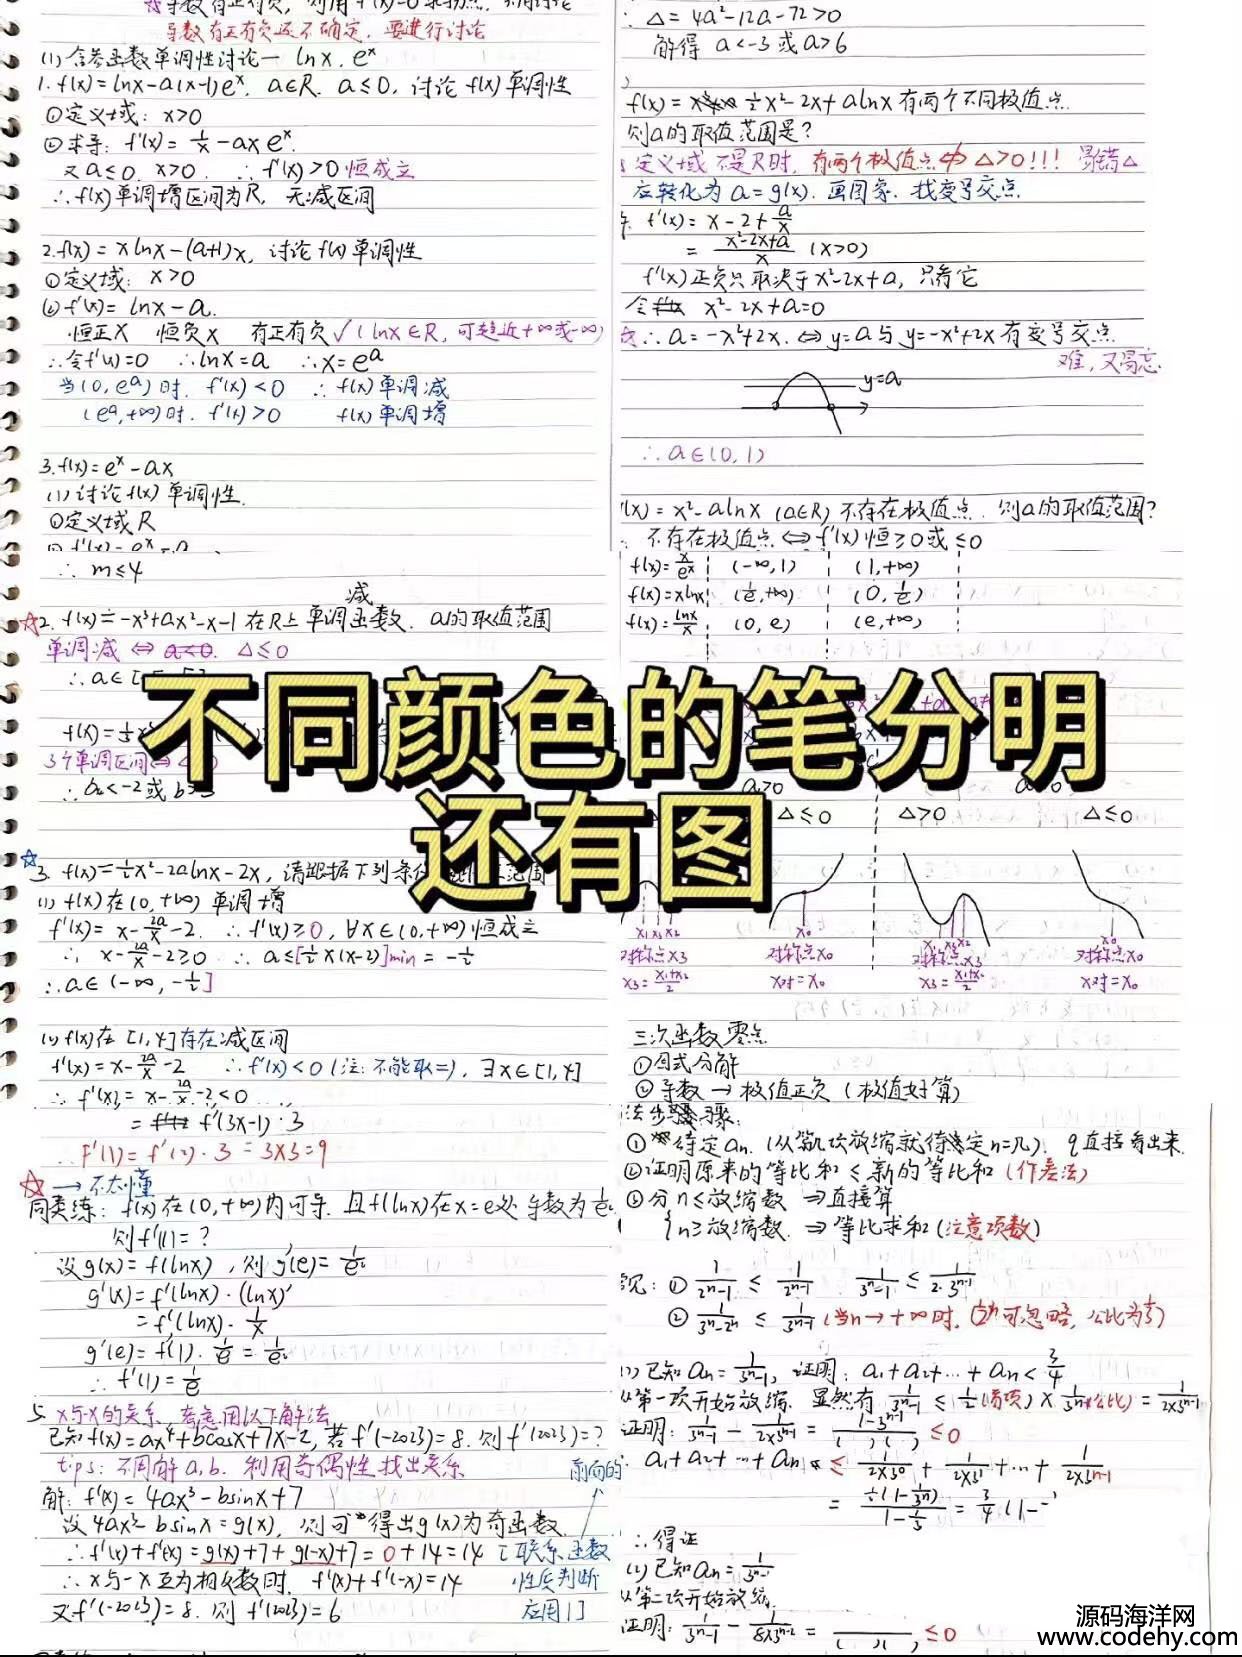 导数有正有负还不确定，要进行讨论
(1) 含参函数单调性讨论一 lnx, eˣ
1. f(x)=lnx-a(x-1)eˣ, a∈R, a≤0, 讨论 f(x) 单调性
①定义域: x>0
②求导: f'(x)=1/x-axeˣ.
又a≤0, x>0. ∴f'(x)>0 恒成立
∴f(x)单调增区间为R, 无减区间
2. f(x)=xlnx-(a+1)x, 讨论 f(x) 单调性
①定义域: x>0
②f'(x)=lnx-a.
恒正X 恒负X 有正有负√(lnx∈R, 可趋近+∞或-∞)
∴令f'(x)=0 ∴lnx=a ∴x=eᵃ
当(0,eᵃ)时, f'(x)<0 ∴f(x)单调减
(eᵃ,+∞)时, f'(x)>0 f(x)单调增
3. f(x)=eˣ-ax
(1)讨论f(x)单调性.
①定义域R
∴m≤4
减
2. f(x)=-x³+ax²-x-1在R上单调函数, a的取值范围
单调减⇔ Δ≤0
∴a∈[
3个单调区间⇔
∴a<-2或
3. f(x)=½x²-2alnx-2x, 请跟据下列条
(1) f(x)在(0,+∞)单调增
f'(x)=x-2a/x-2. ∴f'(x)≥0, ∀x∈(0,+∞)恒成立
∴x-2a/x-2≥0 ∴a≤[½x(x-2)]min=-½
∴a∈(-∞,-½]
(2) f(x)在[1,4]存在减区间
f'(x)=x-2a/x-2 ∴f'(x)<0(注:不能取=), ∃x∈[1,4]
∴f'(x)=x-2a/x-2<0
=f'(3x-1)·3
∴F'(1)=f'(2)·3=3×3=9
→不太懂
同类练: f(x)在(0,+∞)内可导, 且f(lnx)在x=e处导数为1/e²
则f'(1)=?
设g(x)=f(lnx), 则g'(e)=1/e²
g'(x)=f'(lnx)·(lnx)'
=f'(lnx)·1/x
g'(e)=f'(1)·1/e=1/e²
∴f'(1)=1/e
5. x与-x的关系, 考虑用以下解法
已知f(x)=ax⁴+bcosx+7x-2, 若f'(-2023)=8, 则f'(2023)=?
tips: 不用解a,b. 利用奇偶性找出关系
解: f'(x)=4ax³-bsinx+7
设4ax³-bsinx=g(x), 则可得出g(x)为奇函数
∴f'(x)+f'(-x)=g(x)+7+g(-x)+7=0+14=14
∴x与-x互为相反数时, f'(x)+f'(-x)=14
又f'(-2023)=8, 则f'(2023)=6
前面的
[联系函数
性质判断
应用]
∴Δ=4a²-12a-72>0
解得 a<-3或a>6
f(x)=½x²-2x+alnx有两个不同极值点
则a的取值范围是?
定义域不是R时, 有两个极值点⇎Δ>0!!! 易错△
应转化为a=g(x), 画图象, 找变号交点
f'(x)=x-2+a/x
=(x²-2x+a)/x (x>0)
f'(x)正负只取决于x²-2x+a, 只看它
令 x²-2x+a=0
∴a=-x²+2x. ⇔y=a与y=-x²+2x有变号交点
难, 又易忘
y=a
∴a∈(0,1)
f(x)=x²-alnx(a∈R)不存在极值点, 则a的取值范围?
不存在极值点⇔f'(x)恒≥0或≤0
f(x)=x/eˣ (-∞,1) (1,+∞)
f(x)=xlnx (1/e,+∞) (0,1/e)
f(x)=lnx/x (0,e) (e,+∞)
不同颜色的笔分明
还有图
a>0
Δ≤0 Δ>0 Δ≤0
x₁x₃x₂ x₀ x₁x₃x₂ x₀
对称点x₃ 对称点x₀ 对称点x₃ 对称点x₀
x₃=(x₁+x₂)/2 x对=x₀ x₃=(x₁+x₂)/2 x对=x₀
三次函数零点
①因式分解
②导数→极值正负(极值好算)
法步骤:
①待定an. (从第几项放缩就待定n=几). q直接看出来
②证明原来的等比和≤新的等比和(作差法)
③分n≤放缩数⇒直接算
n≥放缩数⇒等比求和(注意项数)
①1/(2ⁿ-1)≤1/2ⁿ⁻¹ 1/(3ⁿ-1)≤1/(2·3ⁿ⁻¹)
②1/(3ⁿ-2ⁿ)≤1/3ⁿ⁻¹(当n→+∞时, 2ⁿ可忽略, 公比为⅓)
(1)已知an=1/(3ⁿ-1), 证明: a₁+a₂+…+an<¾
从第一项开始放缩, 显然有1/(3ⁿ-1)≤½(首项)×1/3ⁿ⁻¹(公比)=1/(2×3ⁿ⁻¹)
证明: 1/(3ⁿ-1)-1/(2×3ⁿ⁻¹)=(1-3ⁿ⁻¹)/( )( )≤0
a₁+a₂+…+an≤1/(2×3⁰)+1/(2×3¹)+…+1/(2×3ⁿ⁻¹)
=½(1-1/3ⁿ)/(1-⅓)=¾(1-
∴得证
(2)已知an=1/(3ⁿ-1)
从第二项开始放缩
证明: 1/(3ⁿ-1)-1/(8×3ⁿ⁻²)= /( )( )≤0
源码海洋网
www.codehy.com